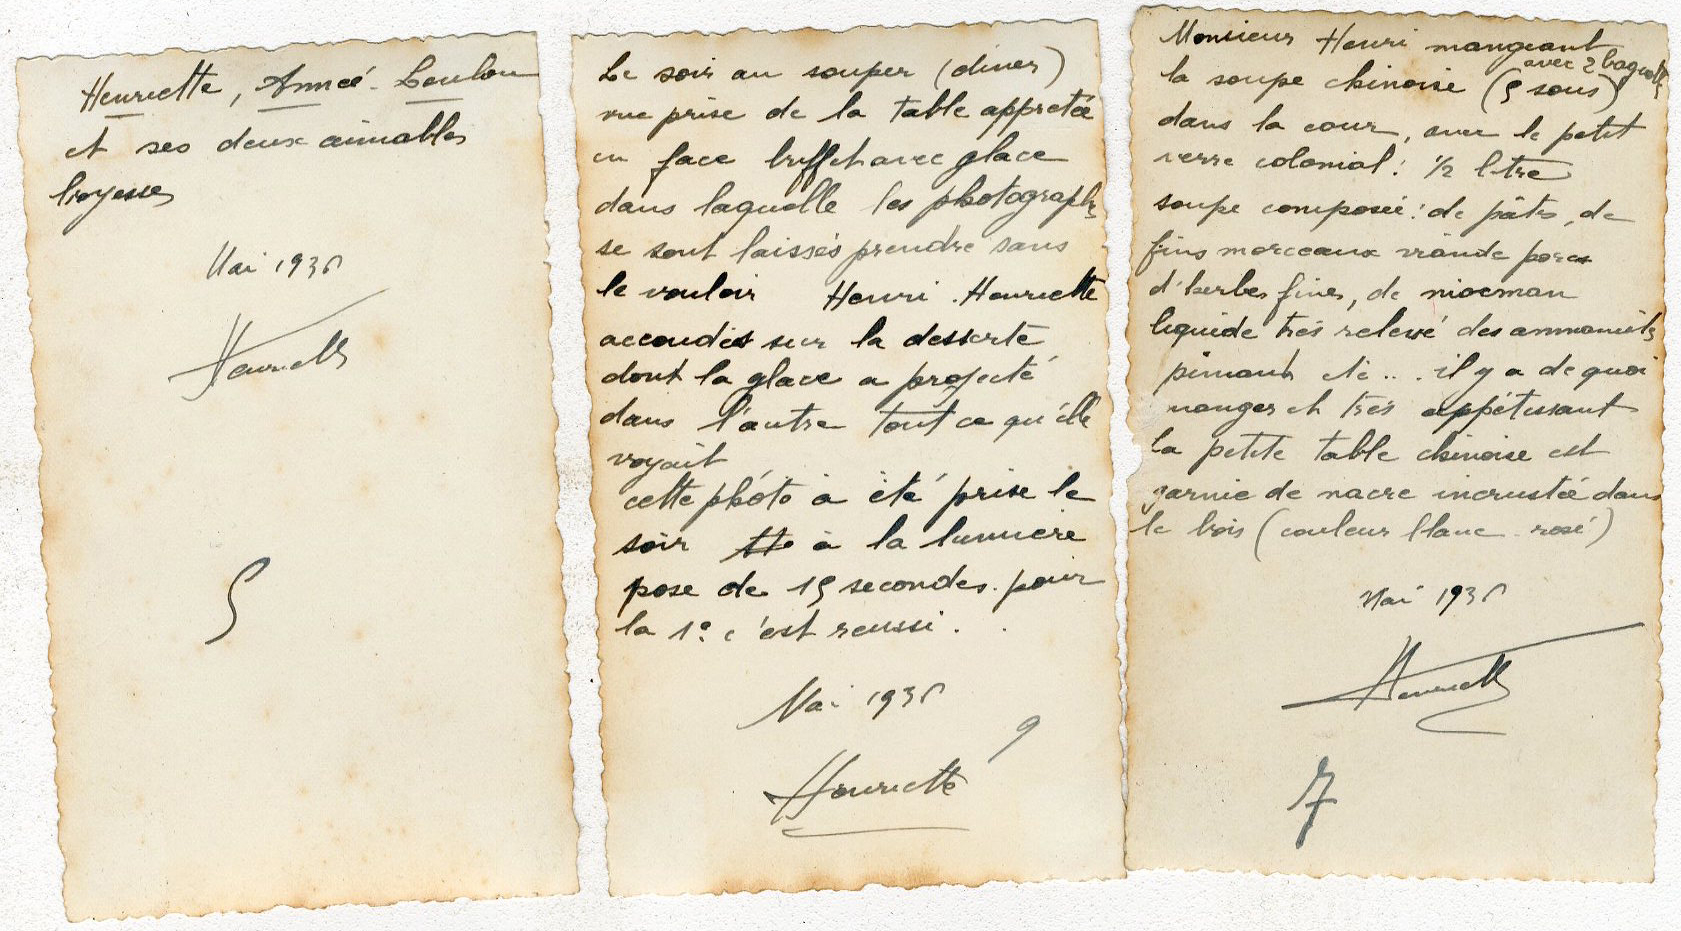 Henriette, Année. Loulou
et ses deux aimables
Mai 1935
Henriette
5
Le soir au souper (diner)
vue prise de la table appretée
en face buffet avec glace
dans laquelle les photographes
se sont laissés prendre sans
le vouloir Henri. Henriette
accoudés sur la desserte
dont la glace a projeté
dans l'autre tout ce qu'elle
voyait
cette phóto à été prise le
soir à la lumière
pose de 15 secondes. pour
la 1e c'est reussi . .
Mai 1935
9
Henriette
Monsieur Henri mangeant
avec 2 baguettes
la soupe chinoise (5 sous)
dans la cour, avec le petit
verre colonial: 1/2 litre
soupe composée: de pâtes, de
fins morceaux viande porc
d'herbes fines, de niocman
liquide très relevé des annamites
piment etc... il y a de quoi
manger et très appétissant
la petite table chinoise est
garnie de nacre incrustée dans
le bois (couleur blanc rosé)
Mai 1935
Henriette
7